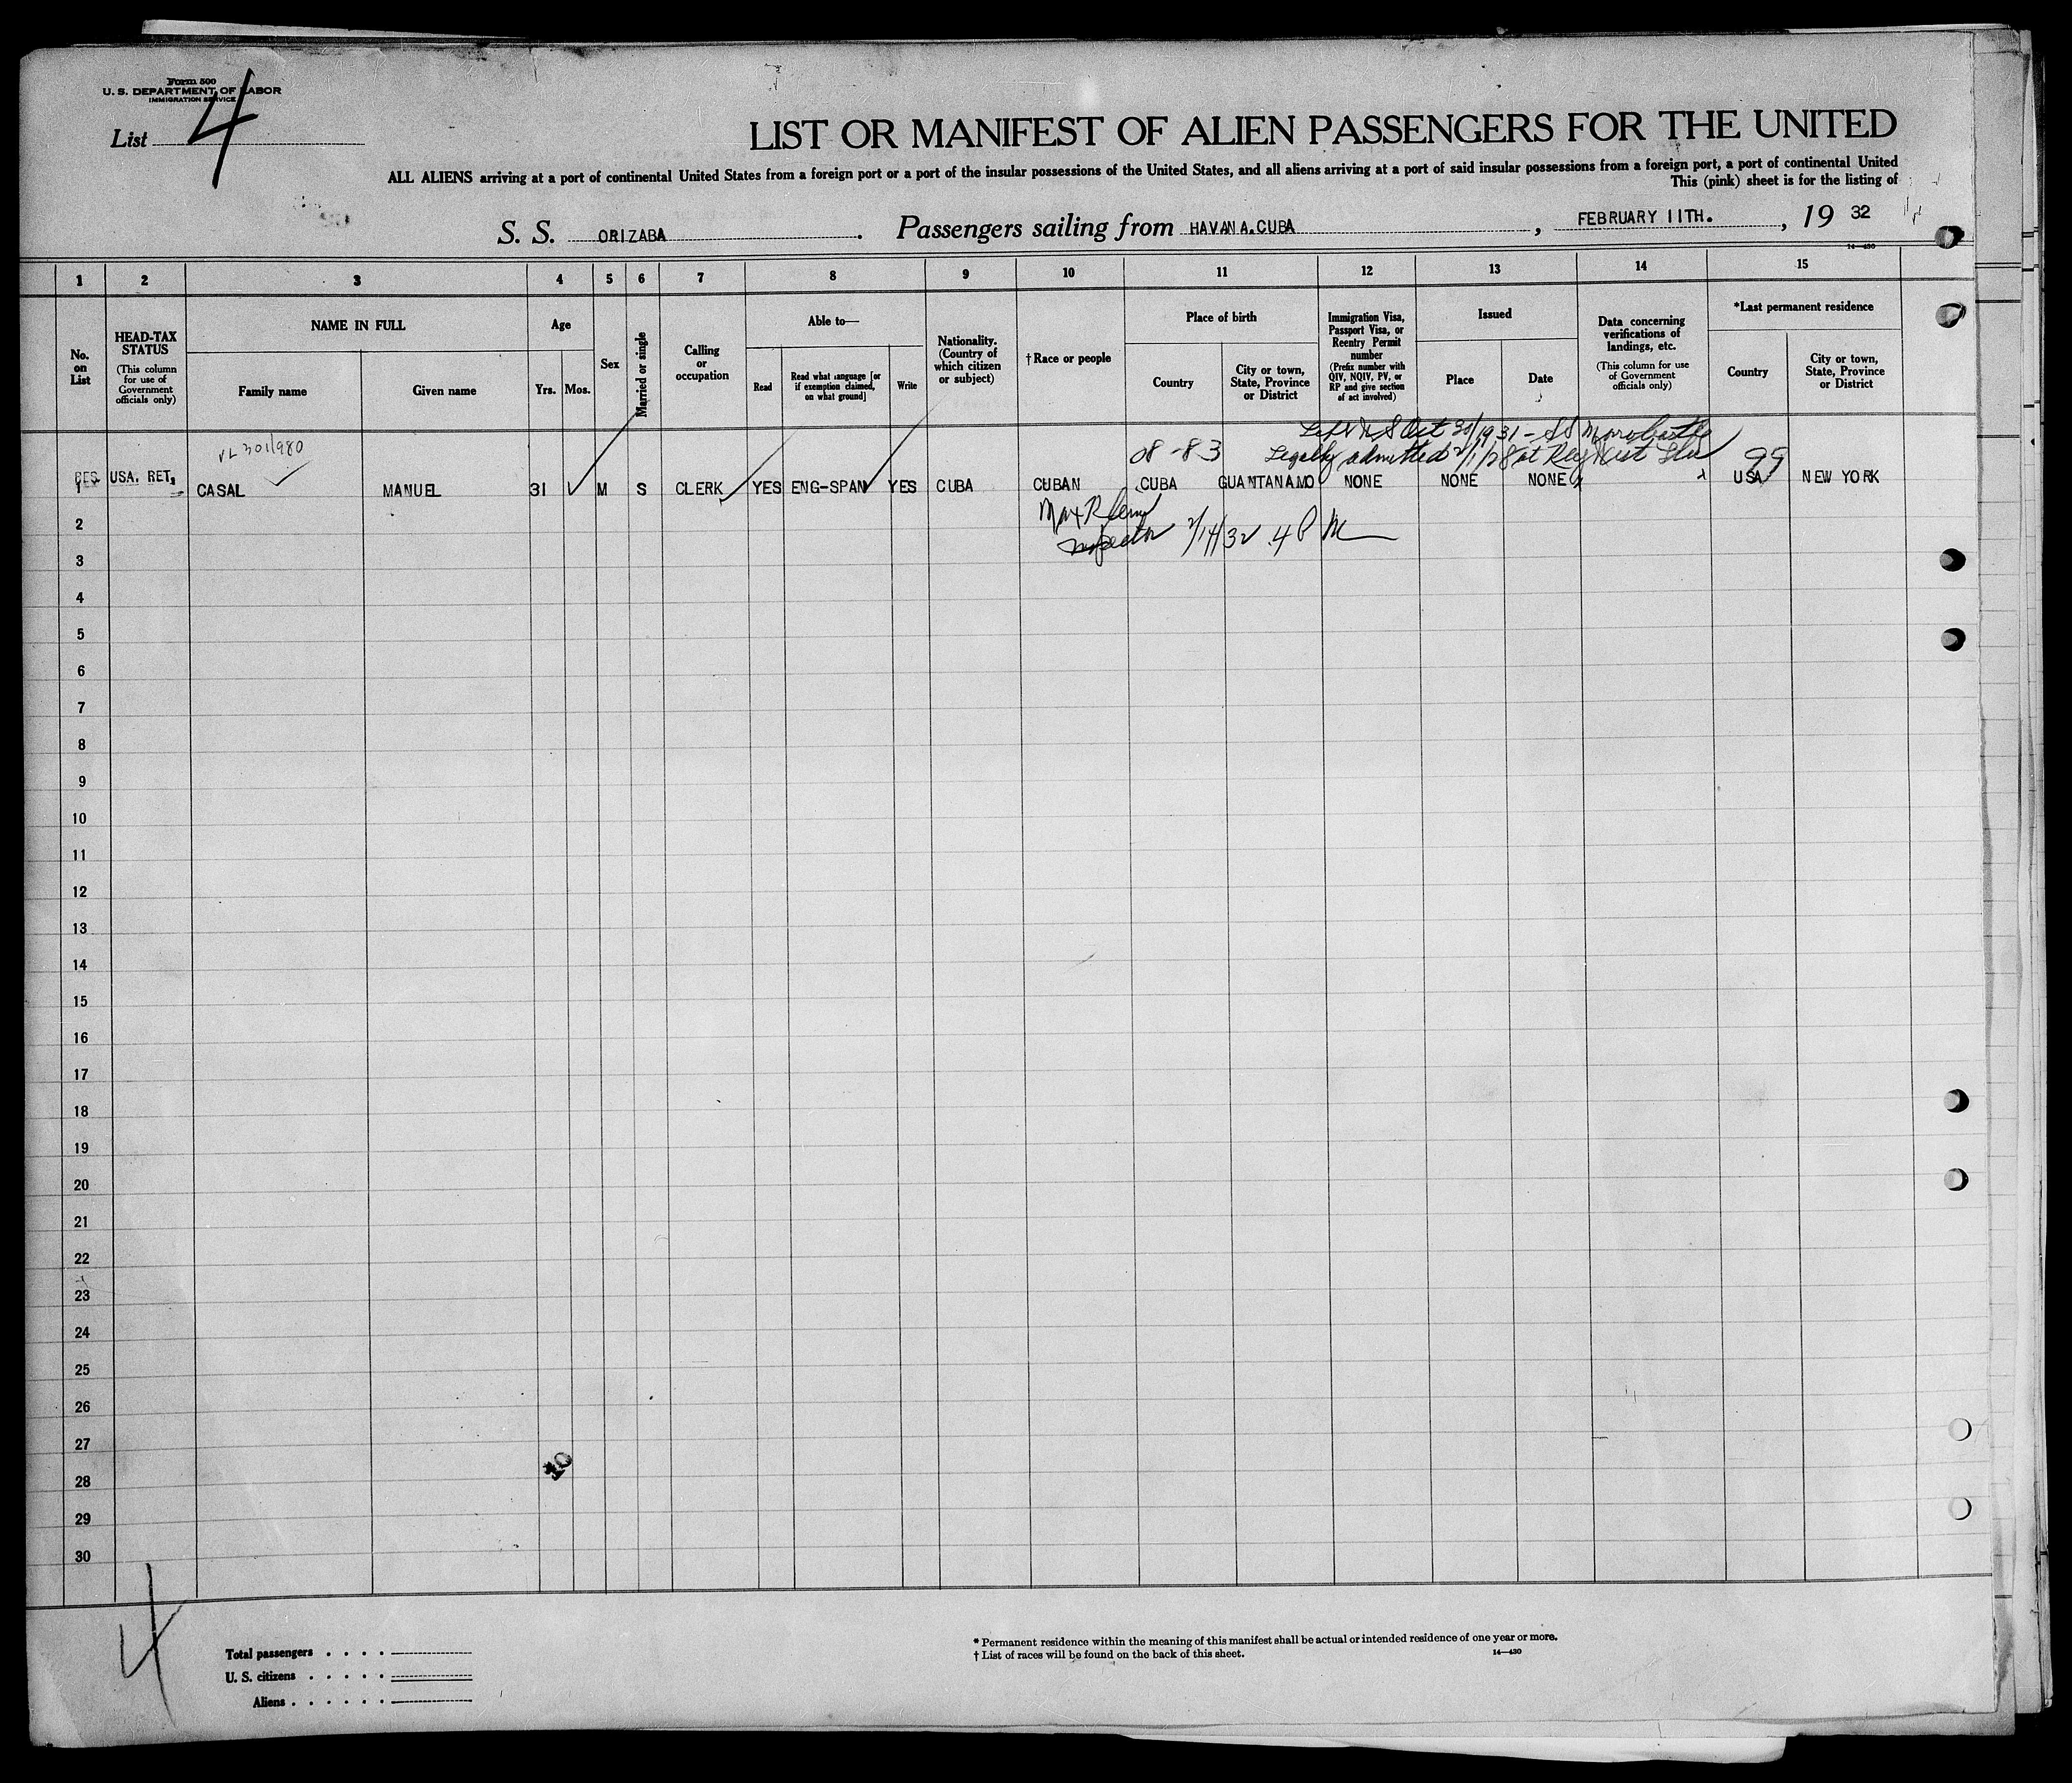 Form 500
U. S. DEPARTMENT OF LABOR
IMMIGRATION SERVICE
List 4
LIST OR MANIFEST OF ALIEN PASSENGERS FOR THE UNITED
ALL ALIENS arriving at a port of continental United States from a foreign port or a port of the insular possessions of the United States, and all aliens arriving at a port of said insular possessions from a foreign port, a port of continental United
This (pink) sheet is for the listing of
S. S. ORIZABA. Passengers sailing from HAVANA.CUBA, FEBRUARY 11TH., 19 32
14—430
1 2 3 4 5 6 7 8 9 10 11 12 13 14 15
No. on List
HEAD-TAX STATUS
(This column for use of Government officials only)
NAME IN FULL
Family name
Given name
Age
Yrs. Mos.
Sex
Married or single
Calling or occupation
Able to—
Read
Read what language [or if exemption claimed, on what ground]
Write
Nationality. (Country of which citizen or subject)
†Race or people
Place of birth
Country
City or town, State, Province or District
Immigration Visa, Passport Visa, or Reentry Permit number
(Prefix number with QIV, NQIV, PV, or RP and give section of act involved)
Issued
Place
Date
Data concerning verifications of landings, etc.
(This column for use of Government officials only)
*Last permanent residence
Country
City or town, State, Province or District
Oct 30/1931 - SS Morro Castle
VL 301980
08-83 Legally admitted 2/1/28 at Key West Fla 99
1 RES. USA. RET. CASAL MANUEL 31 M S CLERK YES ENG-SPAN YES CUBA CUBAN CUBA GUANTANAMO NONE NONE NONE USA NEW YORK
Max
2
Inspector 2/14/32 4 P M
3
4
5
6
7
8
9
10
11
12
13
14
15
16
17
18
19
20
21
22
23
24
25
26
27
10
28
29
30
4
Total passengers . . . .
U. S. citizens . . . . .
Aliens . . . . . .
* Permanent residence within the meaning of this manifest shall be actual or intended residence of one year or more.
† List of races will be found on the back of this sheet.
14—430